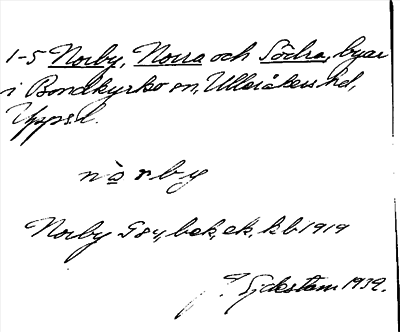 1-5 Norby, Norra och Södra, byar
i Bondkyrko sn, Ulleråkers hd,
Upps.l.
nòrby
Norby G84, bok, ek. kb 1919
Sjöström 1939.